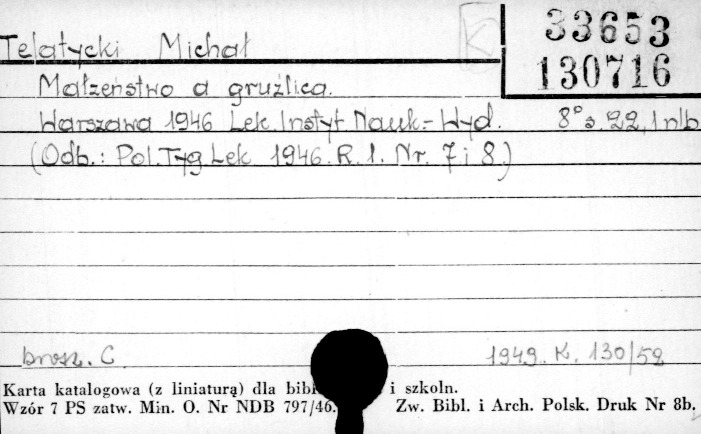 33653
130716
K
Telatycki Michał
Małżeństwo a gruźlica.
Warszawa 1946 Lek. Instyt. Nauk.-Wyd. 8° s. 22, 1 nlb
(Odb.: Pol. Tyg. Lek. 1946. R. 1. Nr. 7 i 8.)
brosz. C 1949. K. 130/52
Karta katalogowa (z liniaturą) dla i szkoln.
Wzór 7 PS zatw. Min. O. Nr NDB 797/46. Zw. Bibl. i Arch. Polsk. Druk Nr 8b.